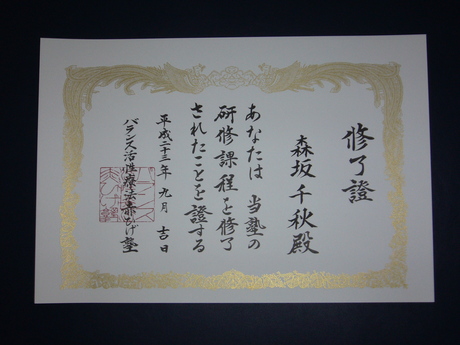 修了證
森坂千秋殿
あなたは 当塾の
研修課程を修了
されたことを證する
平成二十三年 九月 吉日
バランス活性療法赤ひげ塾